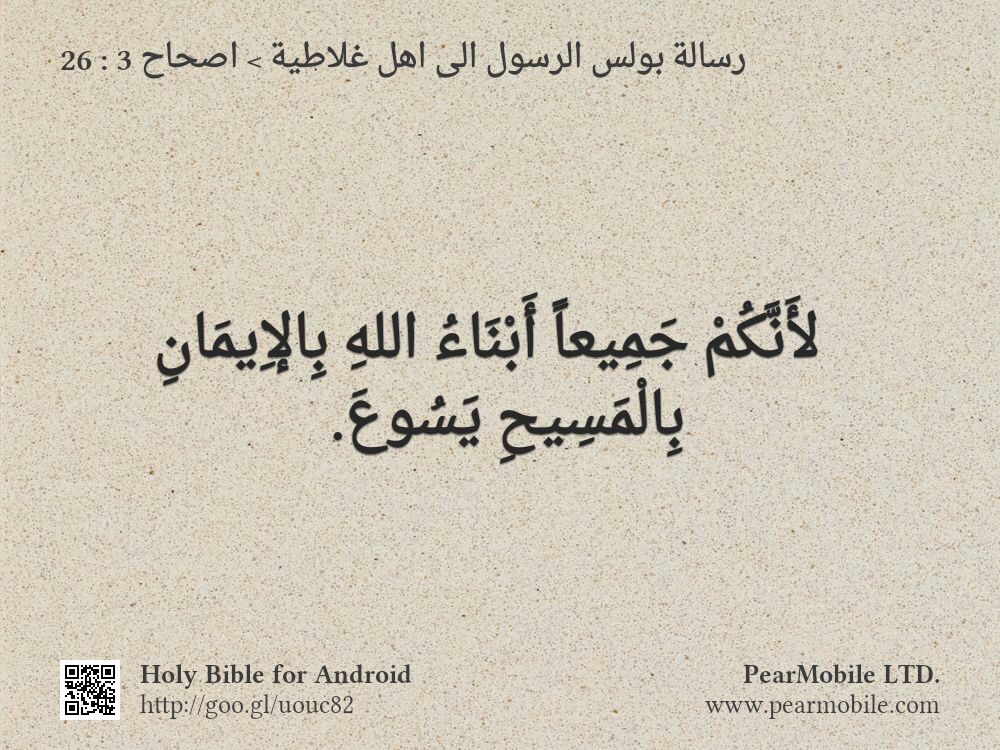 رسالة بولس الرسول الى اهل غلاطية > اصحاح 3 : 26
لأَنَّكُمْ جَمِيعاً أَبْنَاءُ اللهِ بِالإِيمَانِ
بِالْمَسِيحِ يَسُوعَ.
Holy Bible for Android
http://goo.gl/uouc82
PearMobile LTD.
www.pearmobile.com